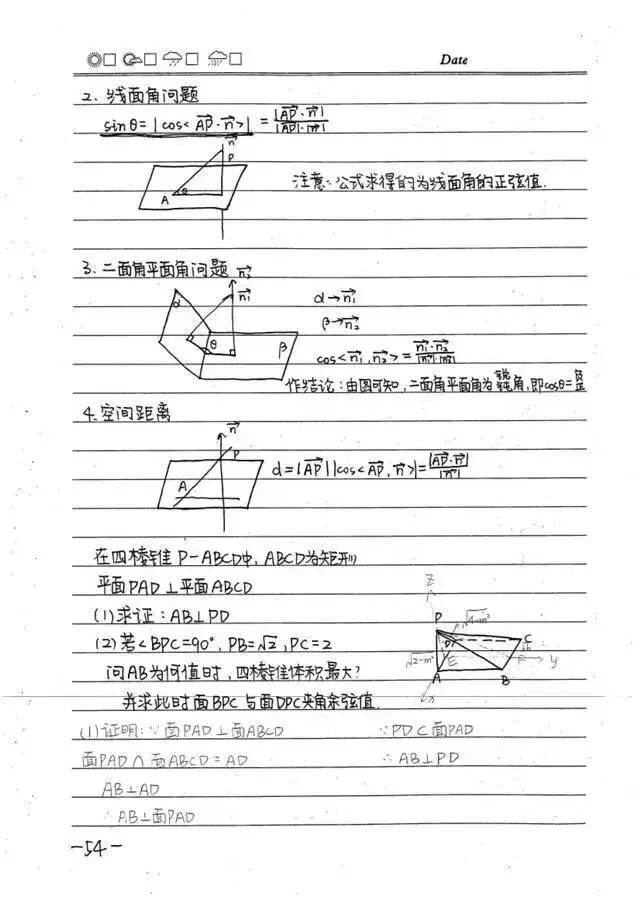 Date
2、线面角问题
sinθ=|cos<AP·n>|=|AP·n|/|AP|·|n|
n
P
A θ
注意:公式求得的为线面角的正弦值.
3、二面角平面角问题
n₂
n₁
α
θ
β
α→n₁
β→n₂
cos<n₁,n₂>=n₁·n₂/|n₁|·|n₂|
作结论:由图可知,二面角平面角为锐/钝角,即cosθ=负/正
4.空间距离
n
P
A
d=|AP||cos<AP,n>|=|AP·n|/|n|
在四棱锥P-ABCD中,ABCD为矩形
平面PAD⊥平面ABCD
(1)求证:AB⊥PD
(2)若<BPC=90°,PB=√2,PC=2
问AB为何值时,四棱锥体积最大?
并求此时面BPC与面DPC夹角余弦值.
z
P
√4-m²
D
C
√2-m²
E
y
A
B
x
(1)证明:∵面PAD⊥面ABCD
面PAD∩面ABCD=AD
AB⊥AD
∴AB⊥面PAD
∵PD⊂面PAD
∴AB⊥PD
-54-